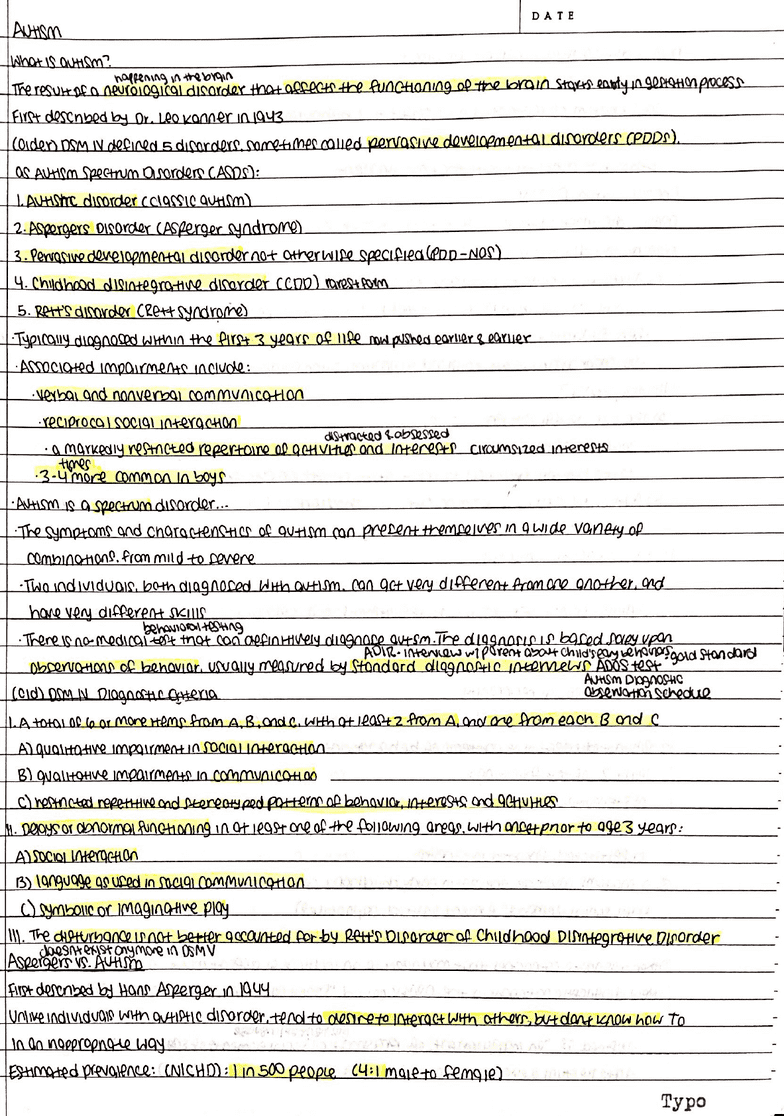 DATE
AUTISM
What is autism?
happening in the brain
The result of a neurological disorder that affects the functioning of the brain starts early in gestation process
First described by Dr. Leo Kanner in 1943
(older) DSM IV defined 5 disorders, sometimes called pervasive developmental disorders (PDDs),
as Autism Spectrum Disorders (ASDs):
1. Autistic disorder (classic autism)
2. Aspergers Disorder (Asperger syndrome)
3. Pervasive developmental disorder not otherwise specified (PDD-NOS)
4. Childhood disintegrative disorder (CDD) rarest form
5. Rett's disorder (Rett syndrome)
·Typically diagnosed within the first 3 years of life now pushed earlier & earlier
·Associated impairments include:
·verbal and nonverbal communication
·reciprocal social interaction
distracted & obsessed
·a markedly restricted repertoire of activities and interests circumsized interests
times
·3-4 more common in boys
·Autism is a spectrum disorder...
·The symptoms and characteristics of autism can present themselves in a wide variety of
combinations, from mild to severe
·Two individuals, both diagnosed with autism, can act very different from one another, and
have very different skills
behavioral testing
·There is no medical test that can definitively diagnose autism. The diagnosis is based soley upon
ADIR - interview w/ parent about child's early behaviors, gold standard
observations of behavior, usually measured by standard diagnostic interviews ADOS test
Autism Diagnostic
observation schedule
(old) DSM IV Diagnostic Criteria
I. A total of 6 or more items from A, B, and C, with at least 2 from A, and one from each B and C
A) qualitative impairment in social interaction
B) qualitative impairments in communication
C) restricted repetitive and stereotyped patterns of behavior, interests and activities
II. Delays or abnormal functioning in at least one of the following areas, with onset prior to age 3 years:
A) social interaction
B) language as used in social communication
C) symbolic or imaginative play
III. The disturbance is not better accounted for by Rett's Disorder of Childhood Disintegrative Disorder
doesn't exist anymore in DSM V
Aspergers vs. Autism
First described by Hans Asperger in 1944
Unlike individuals with autistic disorder, tend to desire to interact with others, but dont know how to
in an inappropriate way
Estimated prevalence: (NICHD): 1 in 500 people (4:1 male to female)
Typo